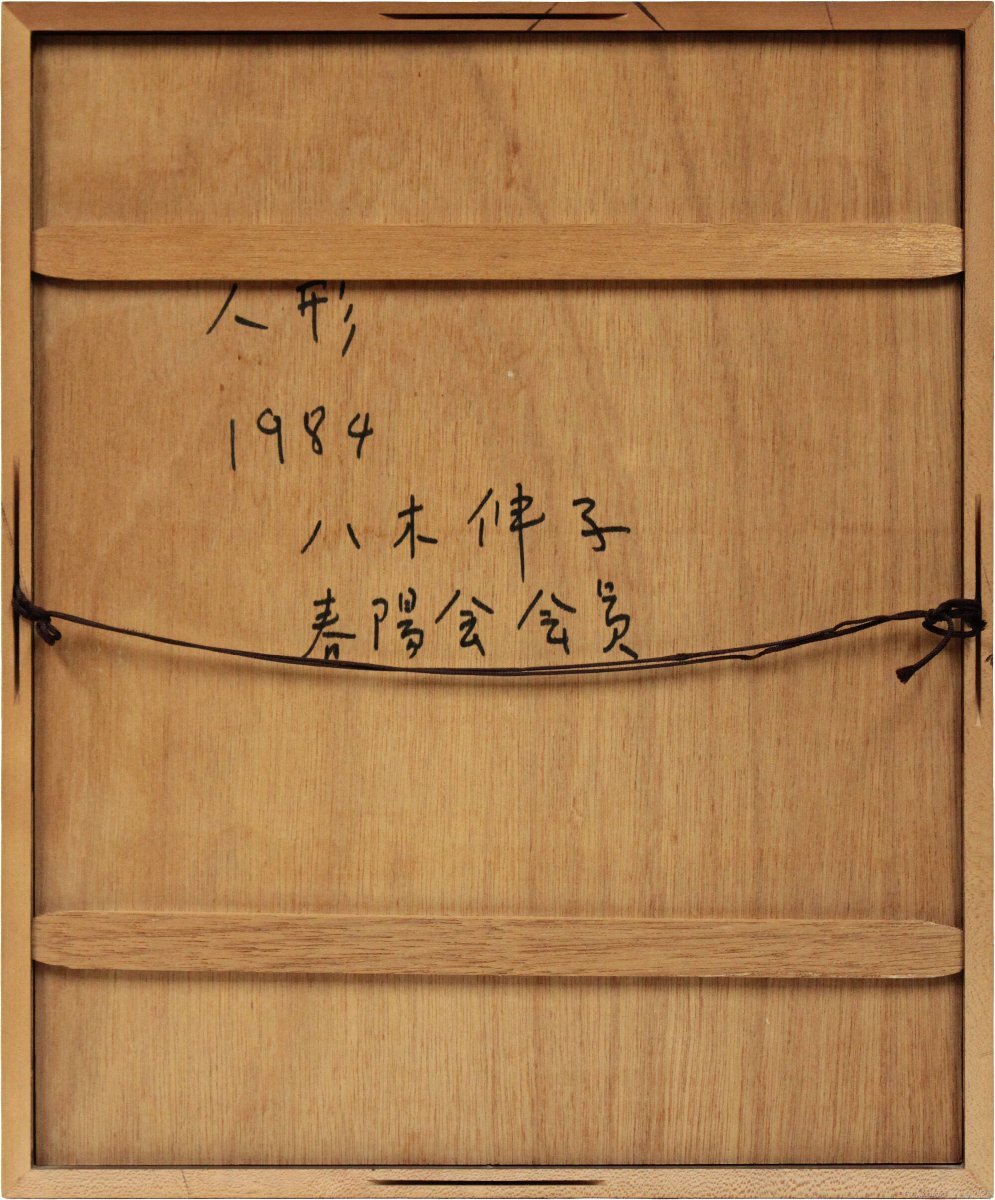 人形
1984
八木伸子
春陽会会員